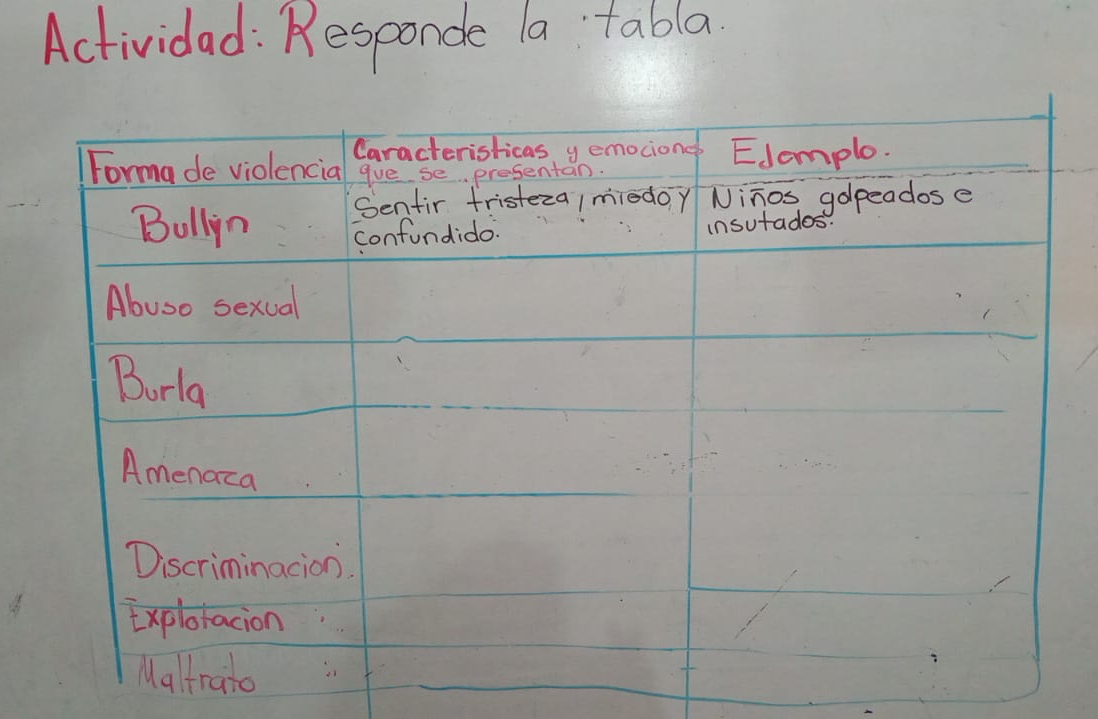 Actividad: Responde la tabla.
Forma de violencia
Caracteristicas y emociones
que se presentan.
Ejemplo.
Bullyn
Sentir tristeza, miedo y
confundido.
Niños golpeados e
insutados.
Abuso sexual
Burla
Amenaza
Discriminacion.
Explotacion
Maltrato